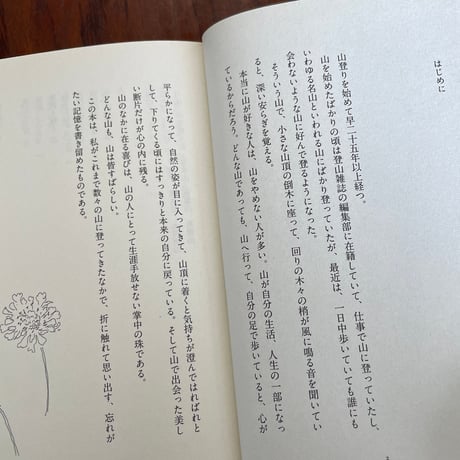 はじめに
山登りを始めて早二十五年以上経つ。
山を始めたばかりの頃は登山雑誌の編集部に在籍していて、仕事で山に登っていたし、
いわゆる名山といわれる山にばかり登っていたが、最近は、一日中歩いていても誰にも
会わないような山に好んで登るようになった。
そういう山で、小さな山頂の倒木に座って、回りの木々の梢が風に鳴る音を聞いてい
ると、深い安らぎを覚える。
本当に山が好きな人は、山をやめない人が多い。山が自分の生活、人生の一部になっ
ているからだろう。どんな山であっても、山へ行って、自分の足で歩いていると、心が
平らかになって、自然の姿が目に入ってきて、山頂に着くと気持ちが澄んではればれと
して、下りてくる頃にはすっきりと本来の自分に戻っている。そして山で出会った美し
い断片だけが心の内に残る。
山のなかに在る喜びは、山の人にとって生涯手放せない掌中の珠である。
どんな山も、山は皆すばらしい。
この本は、私がこれまで数々の山に登ってきたなかで、折に触れて思い出す、忘れが
たい記憶を書き留めたものである。